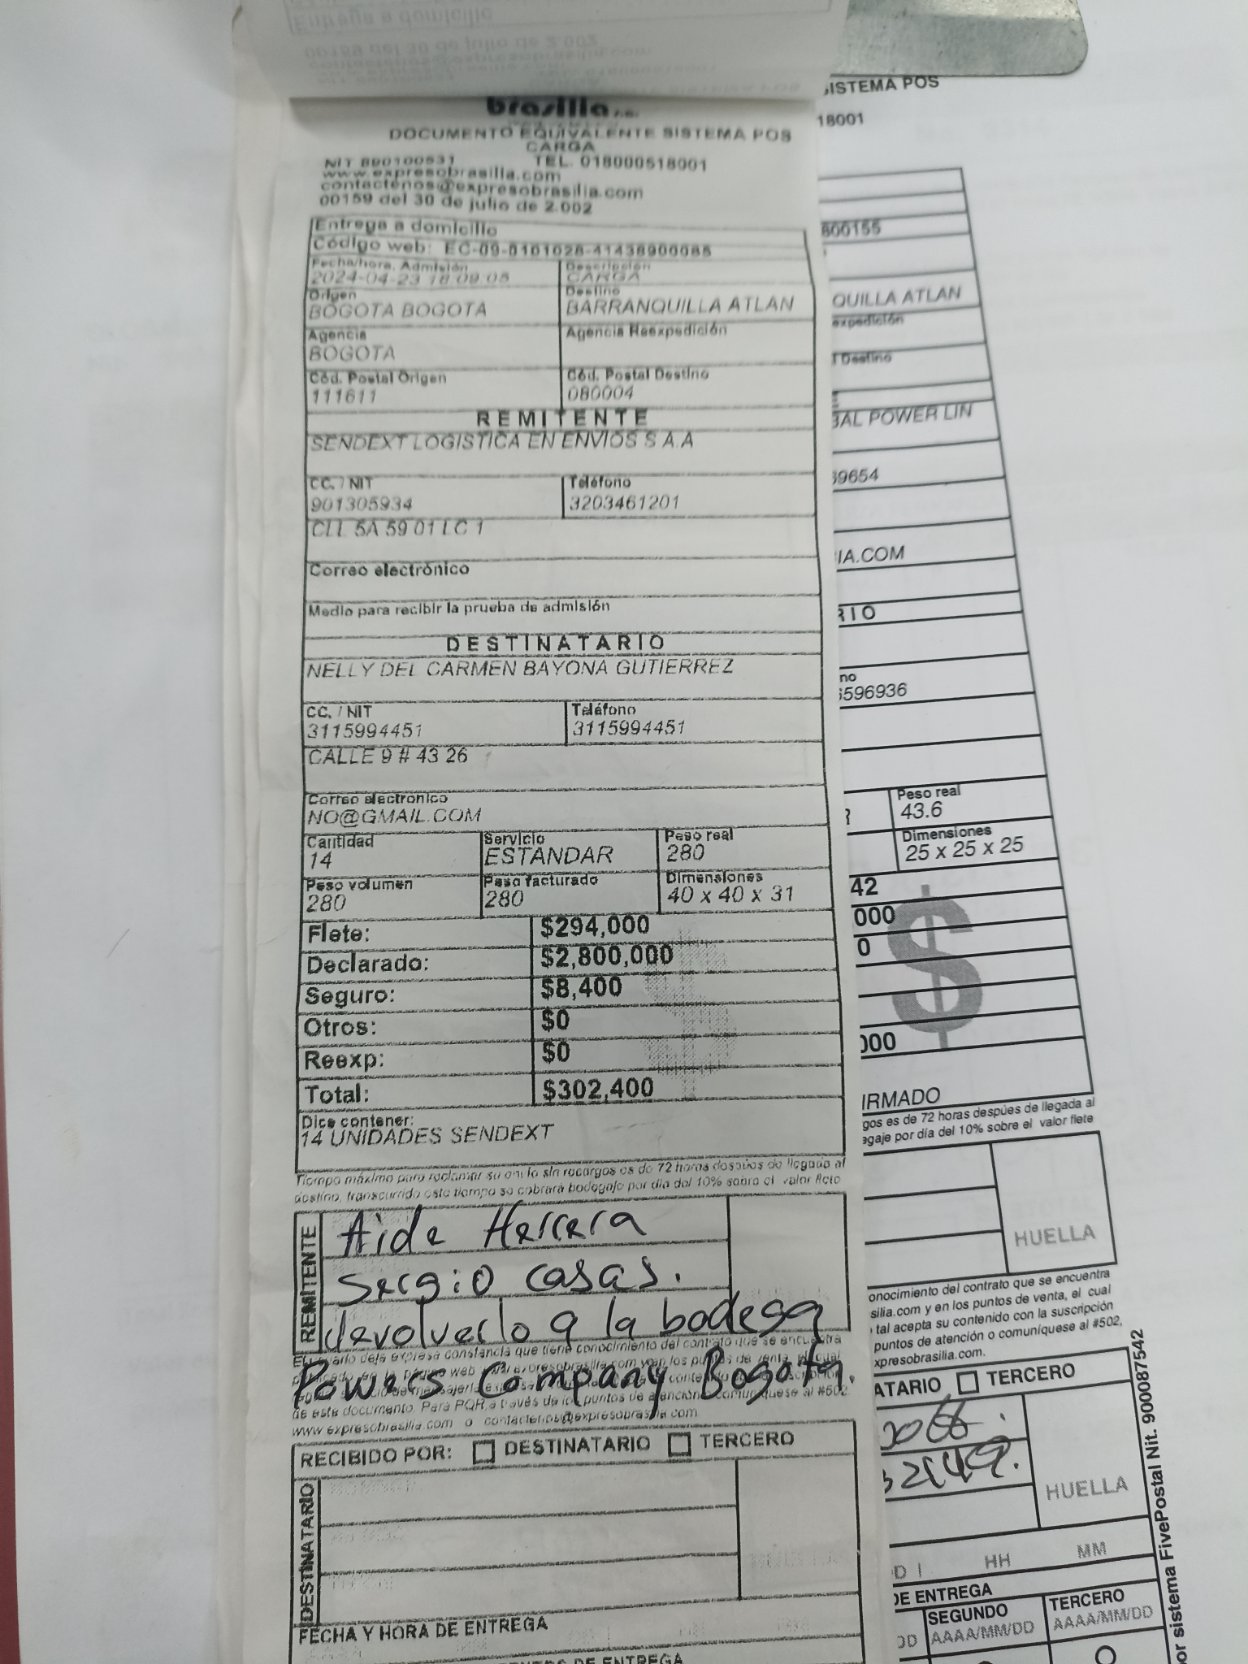 brasilia S.A.
DOCUMENTO EQUIVALENTE SISTEMA POS
CARGA
NIT 890100531 TEL. 018000518001
www.expresobrasilia.com
contactenos@expresobrasilia.com
00159 del 30 de julio de 2.002
Entrega a domicilio
Código web:
Fecha/hora. Admisión Descripción
2024-04-23 18:09:05 CARGA
Origen Destino
BOGOTA BOGOTA BARRANQUILLA ATLAN
Agencia Agencia Reexpedición
BOGOTA
Cód. Postal Origen Cód. Postal Destino
111611 080004
REMITENTE
SENDEXT LOGISTICA EN ENVIOS S A.A
CC. / NIT Teléfono
901305934 3203461201
CLL 5A 59 01 LC 1
Correo electrónico
Medio para recibir la prueba de admisión
DESTINATARIO
NELLY DEL CARMEN BAYONA GUTIERREZ
CC. / NIT Teléfono
3115994451 3115994451
CALLE 9 # 43 26
Correo electronico
NO@GMAIL.COM
Cantidad Servicio Peso real
14 ESTANDAR 280
Peso volumen Peso facturado Dimensiones
280 280 40 x 40 x 31
Flete: $294,000
Declarado: $2,800,000
Seguro: $8,400
Otros: $0
Reexp: $0
Total: $302,400
Dice contener:
14 UNIDADES SENDEXT
Tiempo máximo para reclamar su envío sin recargos es de 72 horas después de llegado al
destino, transcurrido este tiempo se cobrará bodegaje por día del 10% sobre el valor flete
REMITENTE
Aide Herrera
Sergio casas.
devolverlo a la bodega
Powers Company Bogota.
de este documento. Para PQR a través de
www.expresobrasilia.com o contactenos@expresobrasilia.com
RECIBIDO POR: DESTINATARIO TERCERO
DESTINATARIO
FECHA Y HORA DE ENTREGA
DE ENTREGA
SISTEMA POS
18001
600155
QUILLA ATLAN
expedición
Destino
BAL POWER LIN
39654
IA.COM
RIO
no
596936
Peso real
43.6
Dimensiones
25 x 25 x 25
42
000
0
$
000
IRMADO
gos es de 72 horas despúes de llegada al
egaje por día del 10% sobre el valor flete
HUELLA
onocimiento del contrato que se encuentra
silia.com y en los puntos de venta, el cual
tal acepta su contenido con la suscripción
puntos de atención o comuníquese al #502,
xpresobrasilia.com.
ATARIO TERCERO
HUELLA
HH MM
DE ENTREGA
SEGUNDO TERCERO
DD AAAA/MM/DD AAAA/MM/DD
or sistema FivePostal Nit. 900087542